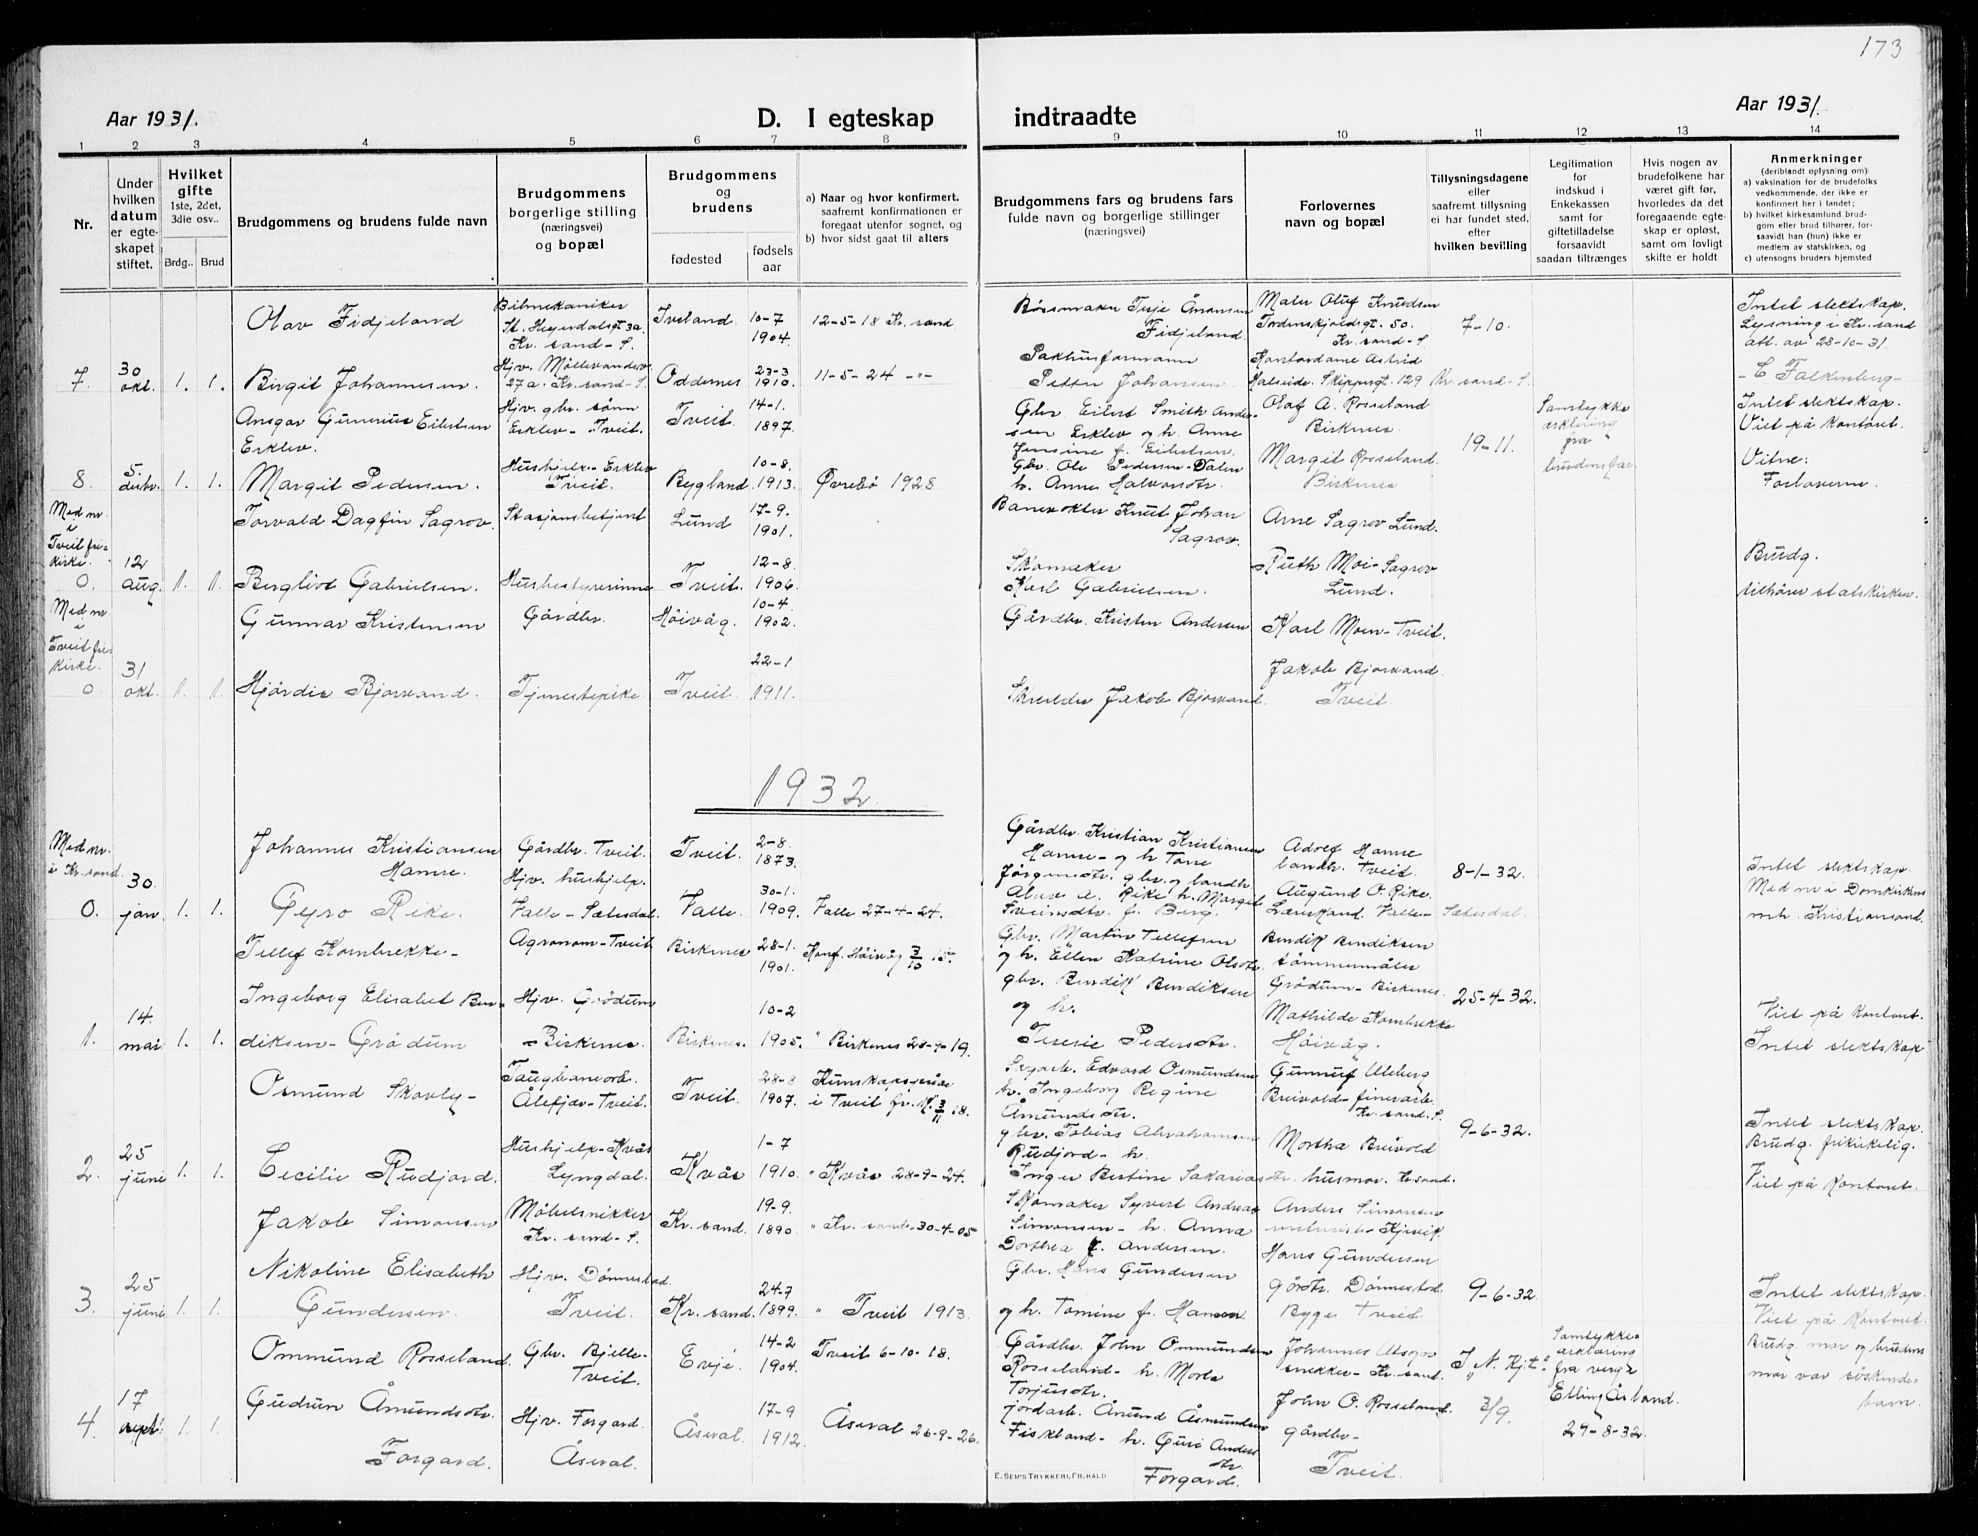 173
Aar 1931.
D. I egteskap
indtraadte
Aar 1931.
1 2 3 4 5 6 7 8 9 10 11 12 13 14
Nr.
Under hvilken datum er egteskapet stiftet.
Hvilket gifte 1ste, 2det, 3die osv..
Brdg.. Brud
Brudgommens og brudens fulde navn
Brudgommens borgerlige stilling (næringsvei) og bopæl
Brudgommens og brudens
fødested
fødsels aar
a) Naar og hvor konfirmert, saafremt konfirmationen er foregaat utenfor sognet, og
b) hvor sidst gaat til alters
Brudgommens fars og brudens fars fulde navn og borgerlige stillinger (næringsvei)
Forlovernes navn og bopæl
Tillysningsdagene eller saafremt tillysning ei har fundet sted, efter hvilken bevilling
Legitimation for indskud i Enkekassen samt for giftetilladelse forsaavidt saadan tiltrænges
Hvis nogen av brudefolkene har været gift før, hvorledes da det foregaaende egteskap er opløst, samt om lovligt skifte er holdt
Anmerkninger (deriblandt oplysning om):
a) vaksination for de brudefolks vedkommende, der ikke er konfirmert her i landet;
b) hvilket kirkesamfund brudgom eller brud tilhører, forsaavidt han (hun) ikke er medlem av statskirken, og
c) utensogns bruders hjemsted
Olav Fidjeland
Bilmekaniker
Kr. sand - S.
Iveland
10-7
1904.
12-5-18 Kr. sand
Terje Aanonsen
Fidjeland.
Maler Oluf Knudsen
Tordenskjoldsgt. 50.
Kr. sand - S.
7-10.
Intet slektskap.
Lysning i Kr. sand
att. av 28-10-31.
7. 30 okt. 1. 1.
Birgit Johannesen.
27a. Kr. sand - S.
Oddernes
23-3
1910.
11-5-24 -"-
Pakhusformann
Petter Johansen.
Kontordame Astrid
Skippergt. 129 Kr. sand - S.
- E Falkenberg -
Ansgar Gunerius Eilertsen
Erklev.
Hjv. gbr. sønn
Erklev - Tveit.
Tveit.
14-1.
1897.
Gbr. Eilert Smith Andersen
Erklev og h. Anne
Jensine f. Eilertsen.
Olaf A. Rosseland
Birkenes.
19-11.
Samtykke
erklæring
fra
brudens far.
Intet slektskap.
Viet på kontoret.
8. 5. debr. 1. 1.
Margit Pedersen.
Hushjelp - Erklev
Tveit.
Bygland.
10-8.
1913.
Øvrebø 1928
Gbr. Ole Pedersen - Dalen
h. Anne Halvorsdtr.
Margit Rosseland.
Birkenes
Vitne:
Forloverne.
Med nr.
i
Tveit frikirke.
Torvald Dagfin Sagrov.
Stasjonsbetjent
Lund
17-9.
1901.
Banevokter Knut Johan
Sagrov.
Arne Sagrov Lund.
0. 12 aug. 1. 1.
Bergliot Gabrielsen.
Husbestyrerinne
Tveit.
12-8.
1906.
Skomaker
Karl Gabrielsen.
Ruth Moi - Sagrov
Lund.
Brudg.
tilhører statskirken.
Med nr
i
Tveit frikirke.
Gunnar Kristensen
Gårdbr.
Høivåg.
10-4.
1902.
Gårdbr. Kristen Andersen
Karl Moen - Tveit.
0. 31 okt. 1. 1.
Hjørdis Bjorvand.
Tjenestepike
Tveit.
22-1
1911.
Skredder Jakob Bjorvand.
Jakob Bjorvand.
Tveit.
1932.
Med nr.
i Kr. sand.
Johannes Kristiansen
Hamre.
Gårdbr. Tveit.
Tveit.
2-8.
1873.
Gårdbr. Kristian Kristiansen
Hamre - og h Tone
Jørgensdtr.
Adolf Hamre
landh. Tveit.
8-1-32.
Intet slektskap.
0. 30. jan. 1. 1.
Gyro Rike.
Hjv. hushjelp.
Valle - Setesdal.
Valle.
30-1.
1909.
Valle 27-4-24.
gbr. og landh.
Olav A. Rike h. Margit
Sveinsdtr. f. Berg.
Augund O. Rike.
Valle - Setesdal.
Med nr i Domkirkens
mh. Kristiansand.
Tellef Kornbrekke -
Agronom - Tveit
Birkenes
28-1.
1901.
Konf. Høivåg 3/10 15
Gbr. Martin Tellefsen
og h. Ellen Katrine Olsdtr.
Bendik Bendiksen
tømmermåler
Grødum - Birkenes.
25-4-32.
1. 14. mai 1. 1.
Ingeborg Elisabet Ben-
diksen - Grødum
Hjv. Grødum
- Birkenes.
Birkenes.
10-2
1905.
" Birkenes 19.
gbr. Bendik Bendiksen
og h.
Terese Pedersdtr.
Mathilde Kornbrekke
Høivåg.
Viet på kontoret.
Intet slektskap
Osmund Skovly -
Taugbanearb.
Ålefjær - Tveit.
Tveit.
28-8
1907.
Kunskapsprøve
i Tveit 18.
Edvard Osmundsen
h. Ingeborg Regine
Åmundsdtr.
Gunnuf Uleberg
Kr. sand. S.
9-6-32.
Intet slektskap.
Brudg. frikirkelig.
2. 25 june 1. 1.
Cecilie Rudjord.
Hushjelp - Kvås
Lyngdal.
Kvås
1-7
1910.
" Kvås 28-9-24.
gbr. Tobias Abrahamsen
Rudjord - h.
Inger Bertine Sakariasdtr.
Martha Breivold
husmor. Kr. sand.
Viet på kontoret.
Jakob Simonsen
Møbelsnikker
Kr. sand - S.
Kr. sand.
19-9.
1890.
" Kr. sand - 30-4-05
Skomaker Syvert Andreas
Simonsen - h. Anna
Dorthea f. Andersen.
Anders Simonsen
Kjevik
3. 25 june 1. 1.
Nikoline Elisabeth
Gundersen.
Hjv. Dønnestad.
Tveit.
Kr. sand.
24-7
1899.
" Tveit 1913.
Gbr. Hans Gundersen
og h. Tomine f. Hansen
Hans Gundersen
Dønnestad.
Bygge Tveit
9-6-32.
Intet slektskap.
Viet på kontoret.
Ommund Rosseland.
Gbr. Bjelle -
Tveit.
Evje
14-2
1904.
Tveit 6-10-18.
Gårdbr. John Ommundsen
Rosseland - h. Marte
Torjusdtr.
Johannes
snekker - Kr. sand.
I "N. Kjt."
Samtykke-
erklæring
fra verge
Elling Åsland.
29-8-32.
Brudg. mor og brudens
mor var søskende-
barn.
4. 17 sept. 1. 1.
Gudrun Åmundsdtr.
Forgard.
Hjv. Forgard.
Åseral.
Åseral.
17-9
1912.
Åseral 26-9-26.
jordarb. Åmund Åsmundsen
Fiskland - h. Guro Andersdtr.
Forgard.
John O. Rosseland.
gårdbr -
Tveit.
3/9.
E. SEM'S TRYKKERI, FR.HALD